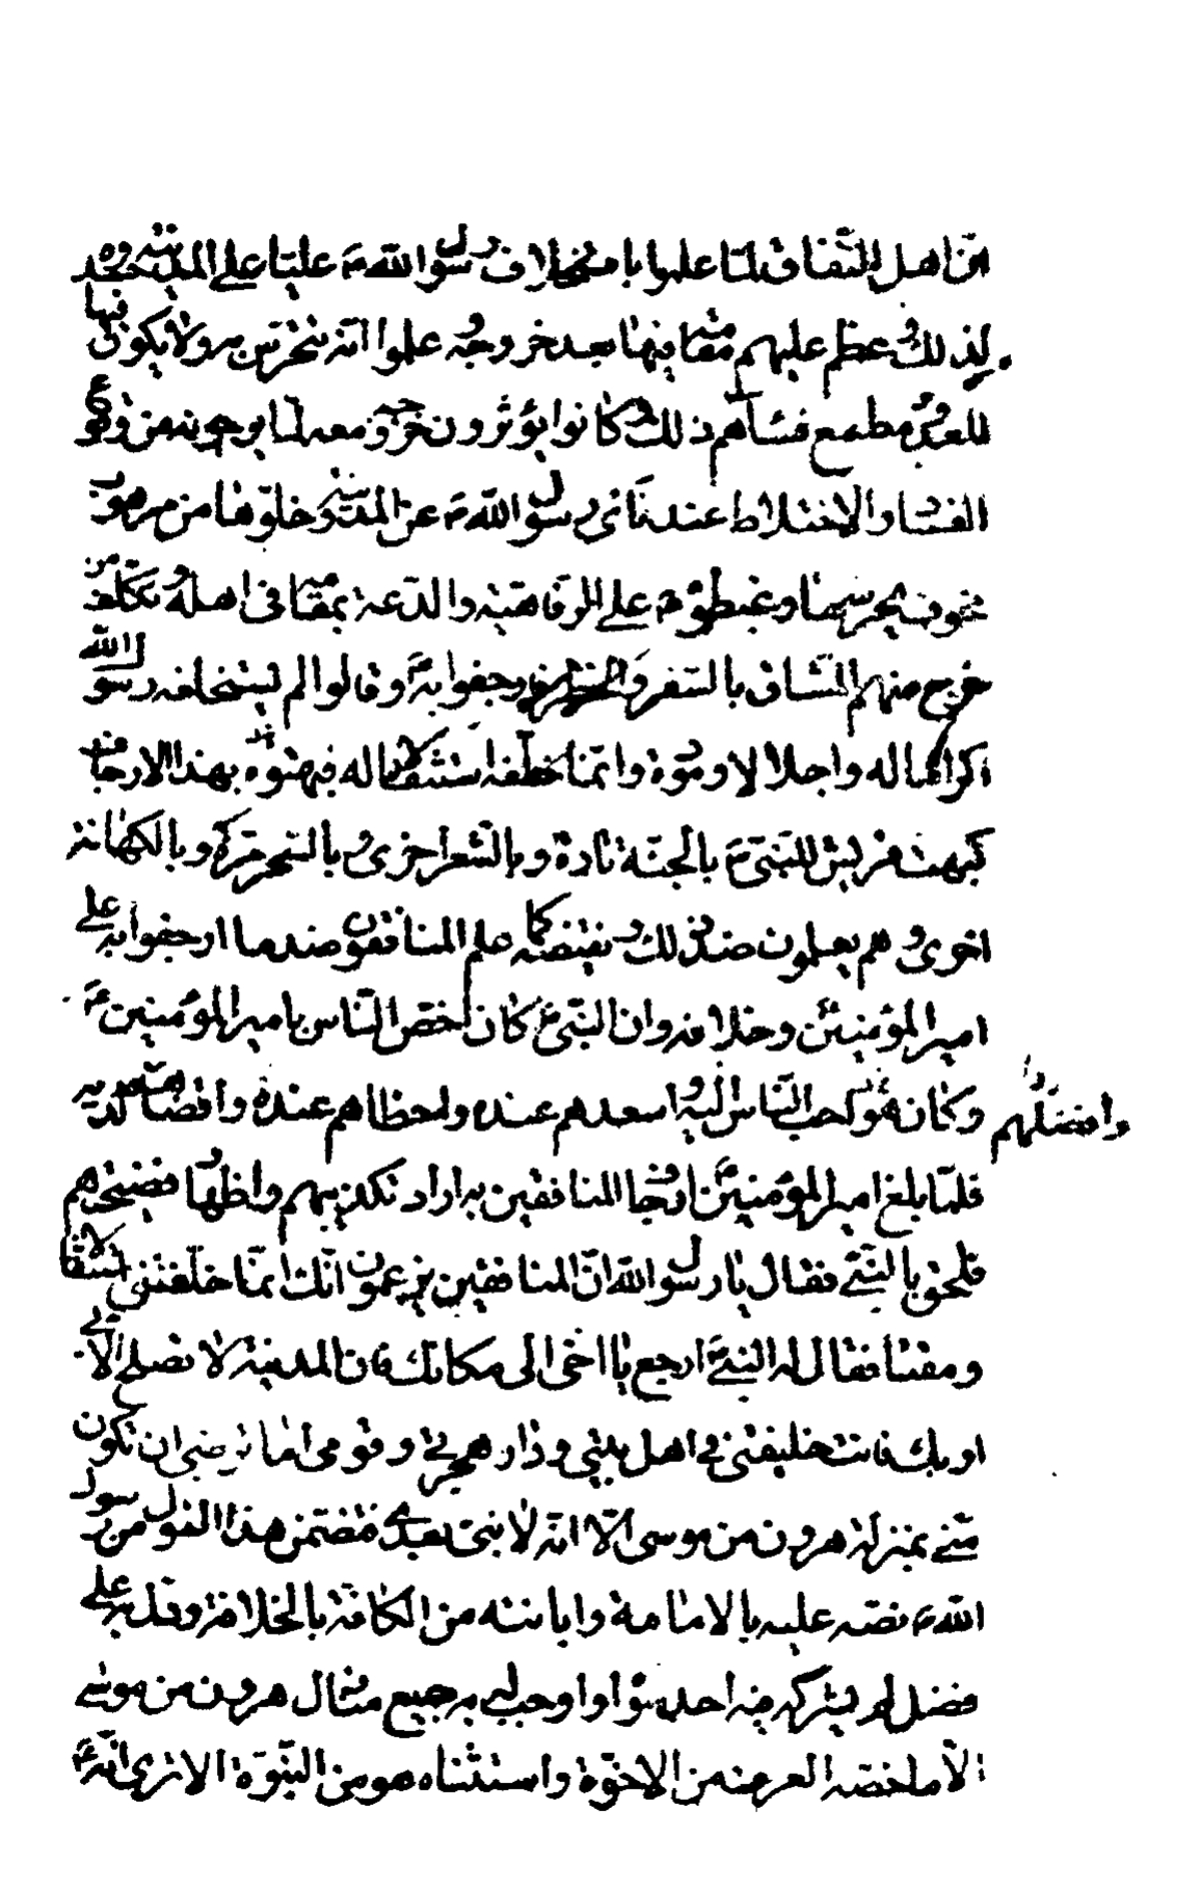 من اهل النّفاق لمّا علموا باستخلاف رسول الله ص عليّا على المدينة حسدوه
لذلك و عظم عليهم مقامه فيها بعد خروجه و علموا انّه تتحرّس به ولا يكون فيها
للعدوّ مطمع فسائهم ذلك و كانوا يؤثرون خروجه معه لما يرجونه من وقوع
الفساد والاختلاط عند نأى رسول الله ص عن المدينة و خلوّها من مرهوب
مخوف يحرسها و غبطوه ع على الرفاهيّة والدّعة بمقامه فى اهله و تكلّف من
خرج منهم المشاق بالسّفر و الخطر فارجفوا به ع و قالوا لم يستخلفه رسول الله
اكراما له واجلالا و مودّة وانّما خلّفه استثقالا له فبهتوه بهذا الارجاف
كبهت قريش للنّبىّ ص بالجنّة تارة و بالشّعر اخرى و بالسّحر مرّة و بالكهانة
اخرى و هم يعلمون ضدّ ذلك و نقيضه كما علم المنافقون ضد ما ارجفوا به على
امير المؤمنين و خلافه وان النّبىّ ع كان اخصّ النّاس بامير المؤمنين ع
وكان هو احب النّاس اليه و اسعدهم عنده واحظاهم عنده و افضلهم لديه
وافضلهم
فلمّا بلغ امير المؤمنين ع ارجاف المنافقين به اراد تكذيبهم و اظهار فضيحتهم
فلحق بالنّبىّ فقال يا رسول الله انّ المنافقين يزعمون انّك انّما خلّفتنى استثقالا
ومقتا فقال له النّبىّ ص ارجع يا اخى الى مكانك فان المدينة لا تصلح الّا بى
او بك فانت خليفتى فى اهل بيتى و دار هجرتى و قومى اما ترضى ان تكون
منّى بمنزلة هرون من موسى الّا انّه لا نبىّ بعدى فتضمّن هذا القول من رسول
الله ص نصّه عليه بالامامة و ابانته من الكافّة بالخلافة و دل به على
فضل لم يشركه فيه احد سواه و اوجب له به جميع منازل هرون من موسى
الّا ما خصّه العرف من الاخوّة واستثناه هو من النّبوّة الا ترى انّه ع